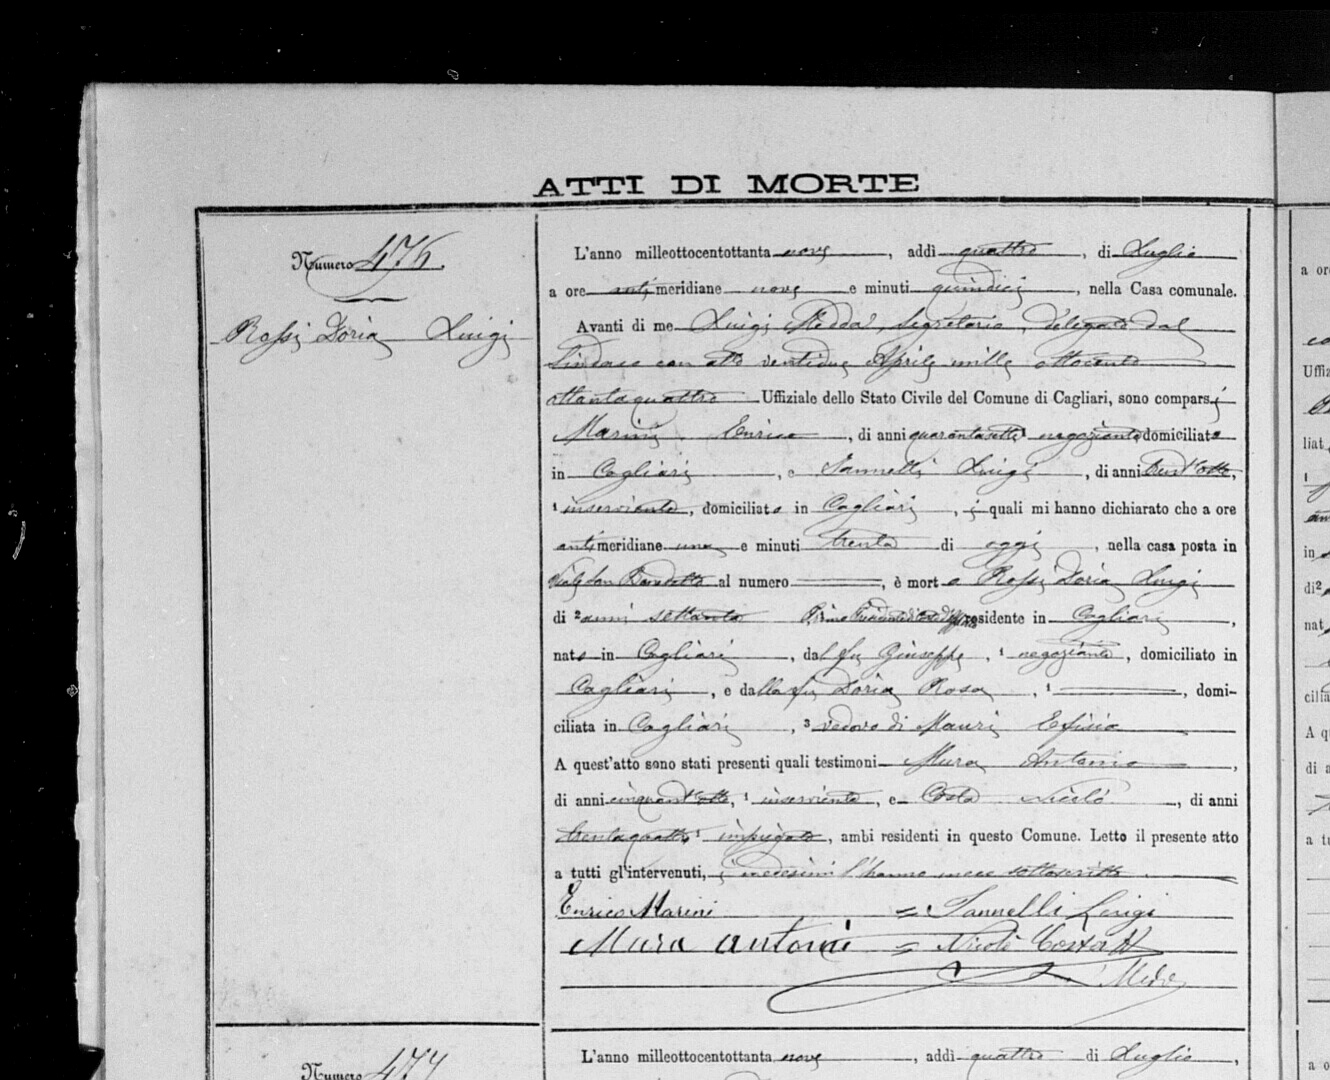 ATTI DI MORTE
Numero 476.
Rossi Doria Luigi
L'anno milleottocentottanta nove, addì quattro, di Luglio
a ore anti meridiane nove e minuti quindici, nella Casa comunale.
Avanti di me Luigi Medda, Segretario, delegato dal
Sindaco con atto ventidue Aprile mille ottocento
ottantaquattro Uffiziale dello Stato Civile del Comune di Cagliari, sono comparsi
Marini Enrico, di anni quarantasette 1 negoziante domiciliato
in Cagliari, e Iannelli Luigi, di anni trent'otto,
1 inserviente, domiciliato in Cagliari, i quali mi hanno dichiarato che a ore
anti meridiane una e minuti trenta di oggi, nella casa posta in
Viale San Benedetto al numero, è morto Rossi Doria Luigi
di 2 anni settanta Primo residente in Cagliari,
nato in Cagliari, dal fu Giuseppe, 1 negoziante, domiciliato in
Cagliari, e dalla fu Doria Rosa, 1, domi-
ciliata in Cagliari, 3 vedovo di Mauri Efisia
A quest'atto sono stati presenti quali testimoni Mura Antonio,
di anni cinquant'otto, 1 inserviente, e Costa Nicolò, di anni
trentaquattro 1 impiegato, ambi residenti in questo Comune. Letto il presente atto
a tutti gl'intervenuti, i medesimi l'hanno meco sottoscritto.
Enrico Marini = Iannelli Luigi
Mura Antoni = Nicolò Costa
Numero 477
L'anno milleottocentottanta nove, addì quattro di Luglio,